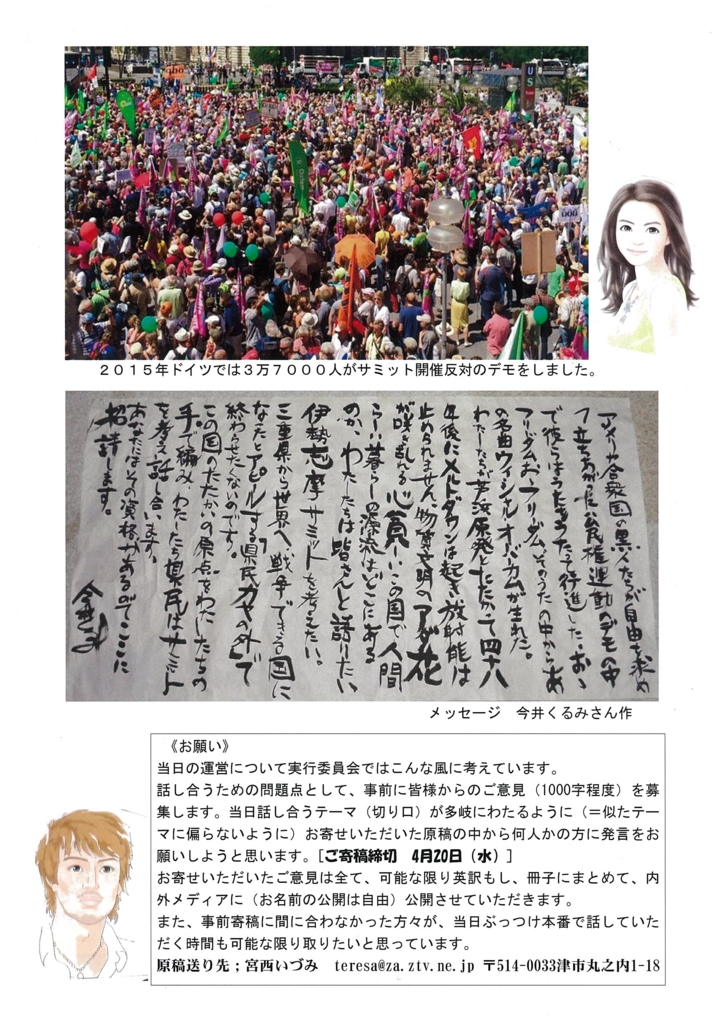 ２０１５年ドイツでは３万７０００人がサミット開催反対のデモをしました。
アメリカ合衆国の黒人たちが自由を求め
て立ちあがった公民権運動のデモの中
で彼らはうたをうたって行進した。おゝ
フリーダムおゝフリーダム。そのうたの中からあ
の名曲ウィシャルオーバカムが生れた。
わたしたちが芦浜原発とたたかって四十八
年後にメルトダウンは起き放射能は
止められません。物質文明のアダ花
が咲き乱れる心貧しいこの国で人間
らしい暮らしの源流はどこにある
のか、わたしたちは皆さんと語りたい
伊勢志摩サミットを考えたい。
三重県から世界へ、戦争できる国に
なったとアピールする「県民カヤの外」で
終わらせたくないのです。
この国のたたかいの原点をわたしたちの
手で編み、わたしたち県民はサミット
を考え話し合います。
あなたにはその資格があるのでここに
招請します。
メッセージ　今井くるみさん作
《お願い》
当日の運営について実行委員会ではこんな風に考えています。
話し合うための問題点として、事前に皆様からのご意見（1000字程度）を募
集します。当日話し合うテーマ（切り口）が多岐にわたるように（＝似たテー
マに偏らないように）お寄せいただいた原稿の中から何人かの方に発言をお
願いしようと思います。［ご寄稿締切　4月20日（水）］
お寄せいただいたご意見は全て、可能な限り英訳もし、冊子にまとめて、内
外メディアに（お名前の公開は自由）公開させていただきます。
また、事前寄稿に間に合わなかった方々が、当日ぶっつけ本番で話していた
だく時間も可能な限り取りたいと思っています。
原稿送り先；宮西いづみ　teresa@za.ztv.ne.jp 〒514-0033津市丸之内1-18